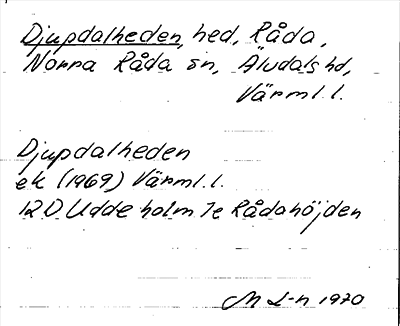 Djupdalheden, hed, Råda,
Norra Råda sn, Älvdals hd,
Värml. l.
Djupdalheden
ek (1969) Värml. l.
12 D Uddeholm 7e Rådahöjden
M L-n 1970